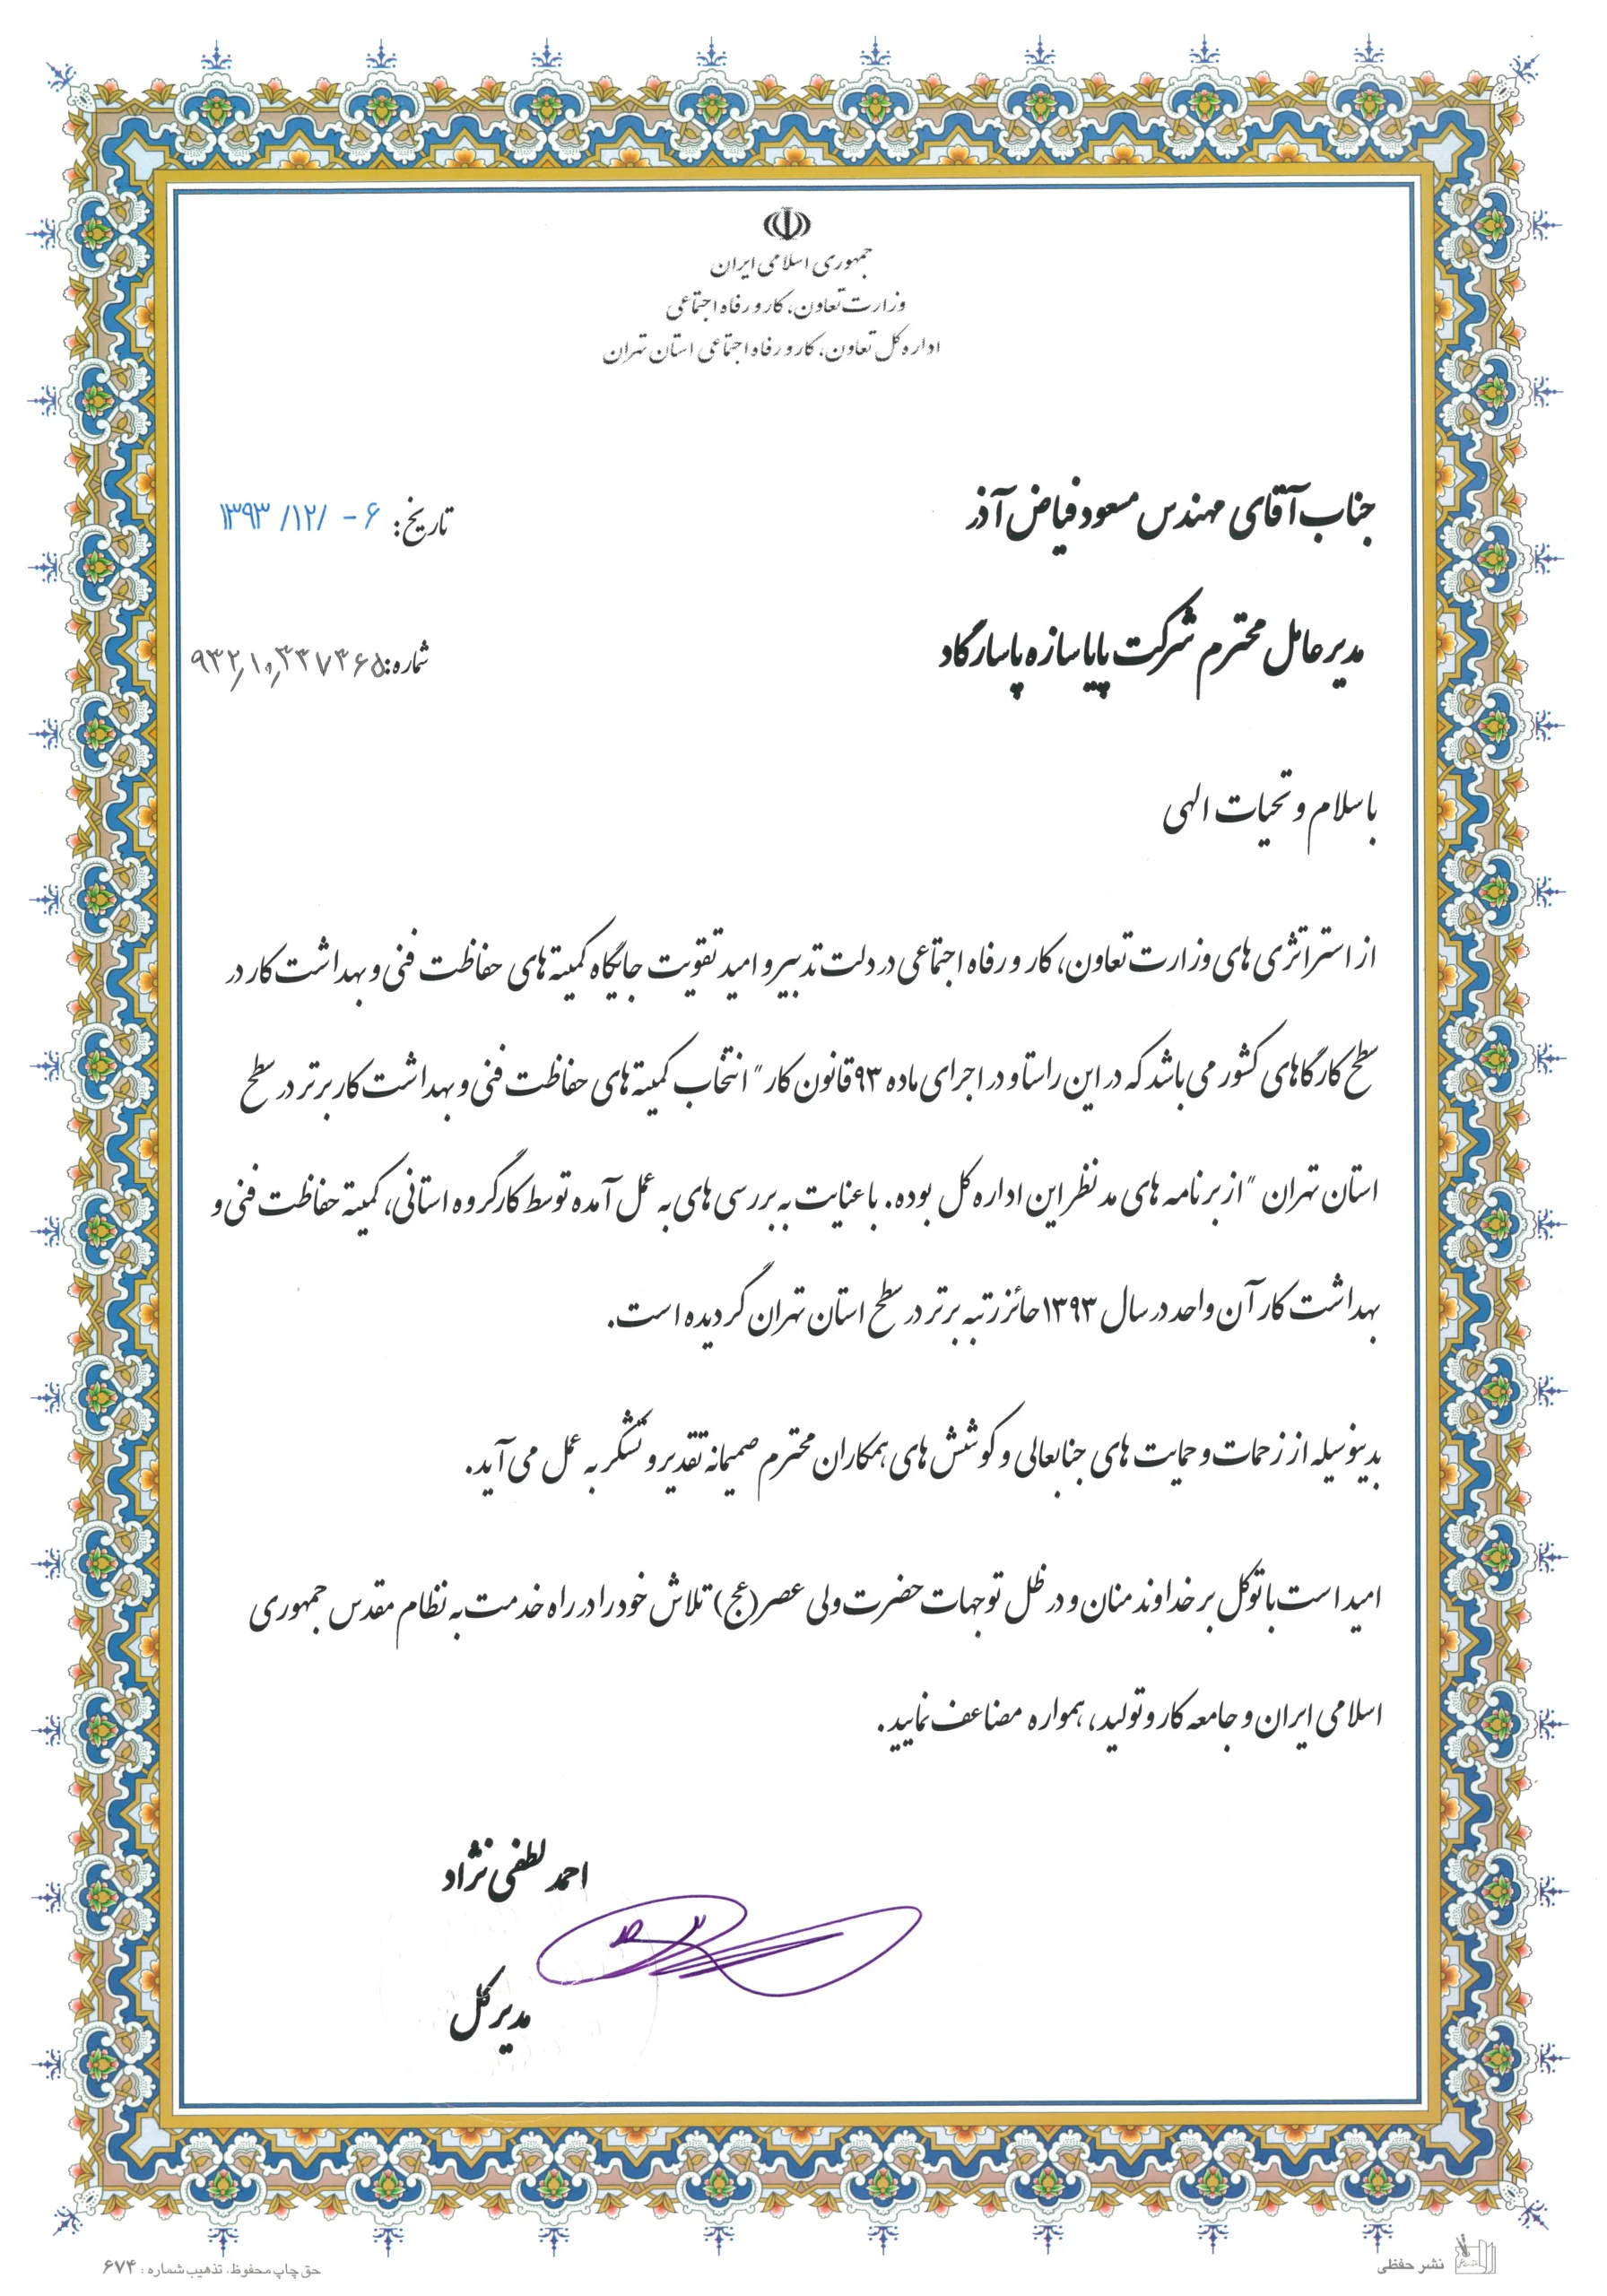 جمهوری اسلامی ایران
وزارت تعاون، کار و رفاه اجتماعی
اداره کل تعاون، کار و رفاه اجتماعی استان تهران
جناب آقای مهندس مسعود فیاض آذر
تاریخ: ۶ - /۱۲/ ۱۳۹۳
مدیر عامل محترم شرکت پایا سازه پاسارگاد
شماره: ۹۳۲٫۱۰٫۳۳۷۳۶۵
با سلام و تحیات الهی
از استراتژی های وزارت تعاون، کار و رفاه اجتماعی در دلت تدبیر و امید تقویت جایگاه کمیته های حفاظت فنی و بهداشت کار در
سطح کارگاهای کشور می باشد که در این راستا و در اجرای ماده ۹۳ قانون کار " انتخاب کمیته های حفاظت فنی و بهداشت کار برتر در سطح
استان تهران " از برنامه های مد نظر این اداره کل بوده. با عنایت به بررسی های به عمل آمده توسط کارگروه استانی، کمیته حفاظت فنی و
بهداشت کار آن واحد در سال ۱۳۹۳ حائز رتبه برتر در سطح استان تهران گردیده است.
بدینوسیله از زحمات و حمایت های جنابعالی و کوشش های همکاران محترم صمیمانه تقدیر و تشکر به عمل می آید.
امید است با توکل بر خداوند منان و در ظل توجهات حضرت ولی عصر (عج) تلاش خود را در راه خدمت به نظام مقدس جمهوری
اسلامی ایران و جامعه کار و تولید، همواره مضاعف نمایید.
احمد لطفی نژاد
مدیر کل
نشر حفظی
حق چاپ محفوظ. تذهیب شماره : ۶۷۴